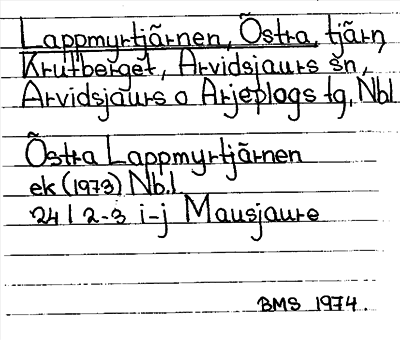 Lappmyrtjärnen, Östra, tjärn
Krutberget, Arvidsjaurs sn,
Arvidsjaurs o Arjeplogs tg, Nbl
Östra Lappmyrtjärnen
ek (1973) Nb.l
24 I 2-3 i-j Mausjaure
BMS 1974.